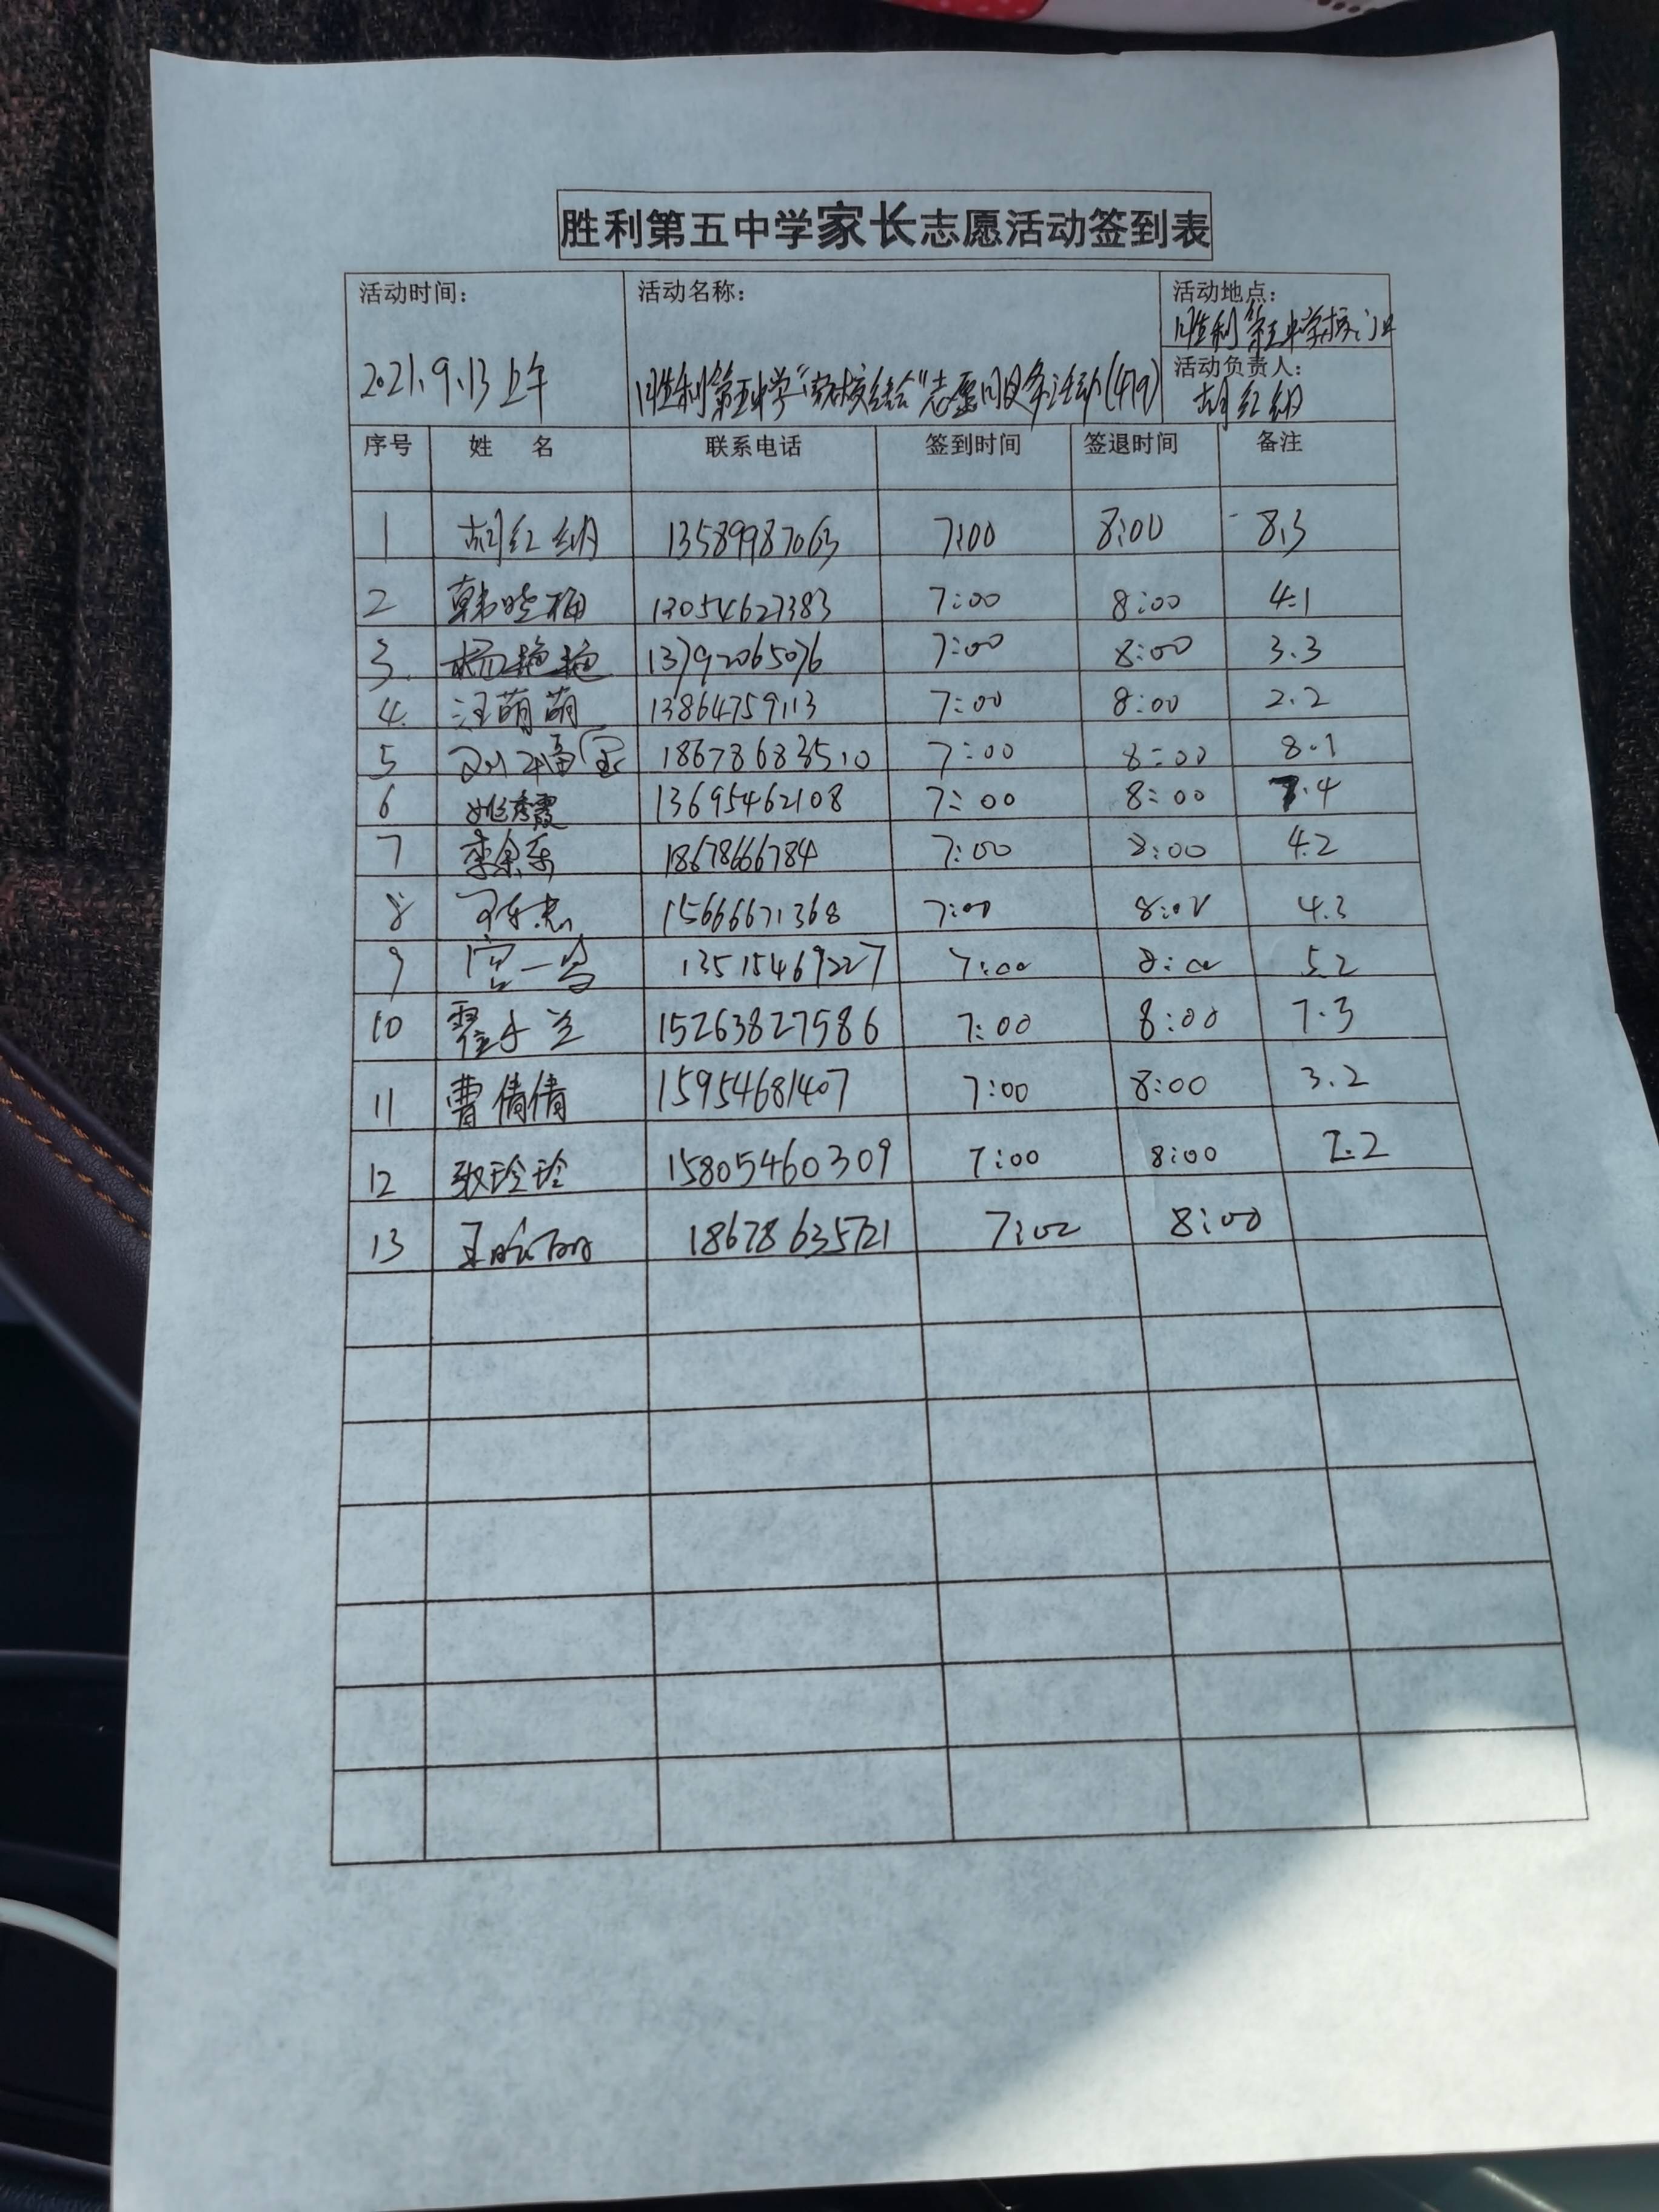 胜利第五中学家长志愿活动签到表
活动时间： 活动名称： 活动地点：
胜利第五中学校门口
2021.9.13上午 胜利第五中学“家校结合”志愿服务活动(479) 活动负责人：
胡红娟
序号 姓 名 联系电话 签到时间 签退时间 备注
1 胡红娟 13589987063 7:00 8:00 8.3
2 韩晓梅 13054627383 7:00 8:00 4.1
3. 杨艳艳 13792065076 7:00 8:00 3.3
4. 汪萌萌 13864759113 7:00 8:00 2.2
5 刘福宝 18678683510 7:00 8:00 8.1
6 姚秀霞 13695462108 7:00 8:00 7.4
7 18678666784 7:00 8:00 4.2
8 15666671368 7:00 8:00 4.3
9 宫一鸣 13515469227 7:00 8:00 5.2
10 15263827586 7:00 8:00 7.3
11 曹倩倩 15954681407 7:00 8:00 3.2
12 张玲玲 15805460309 7:00 8:00 7.2
13 王 18678635721 7:00 8:00